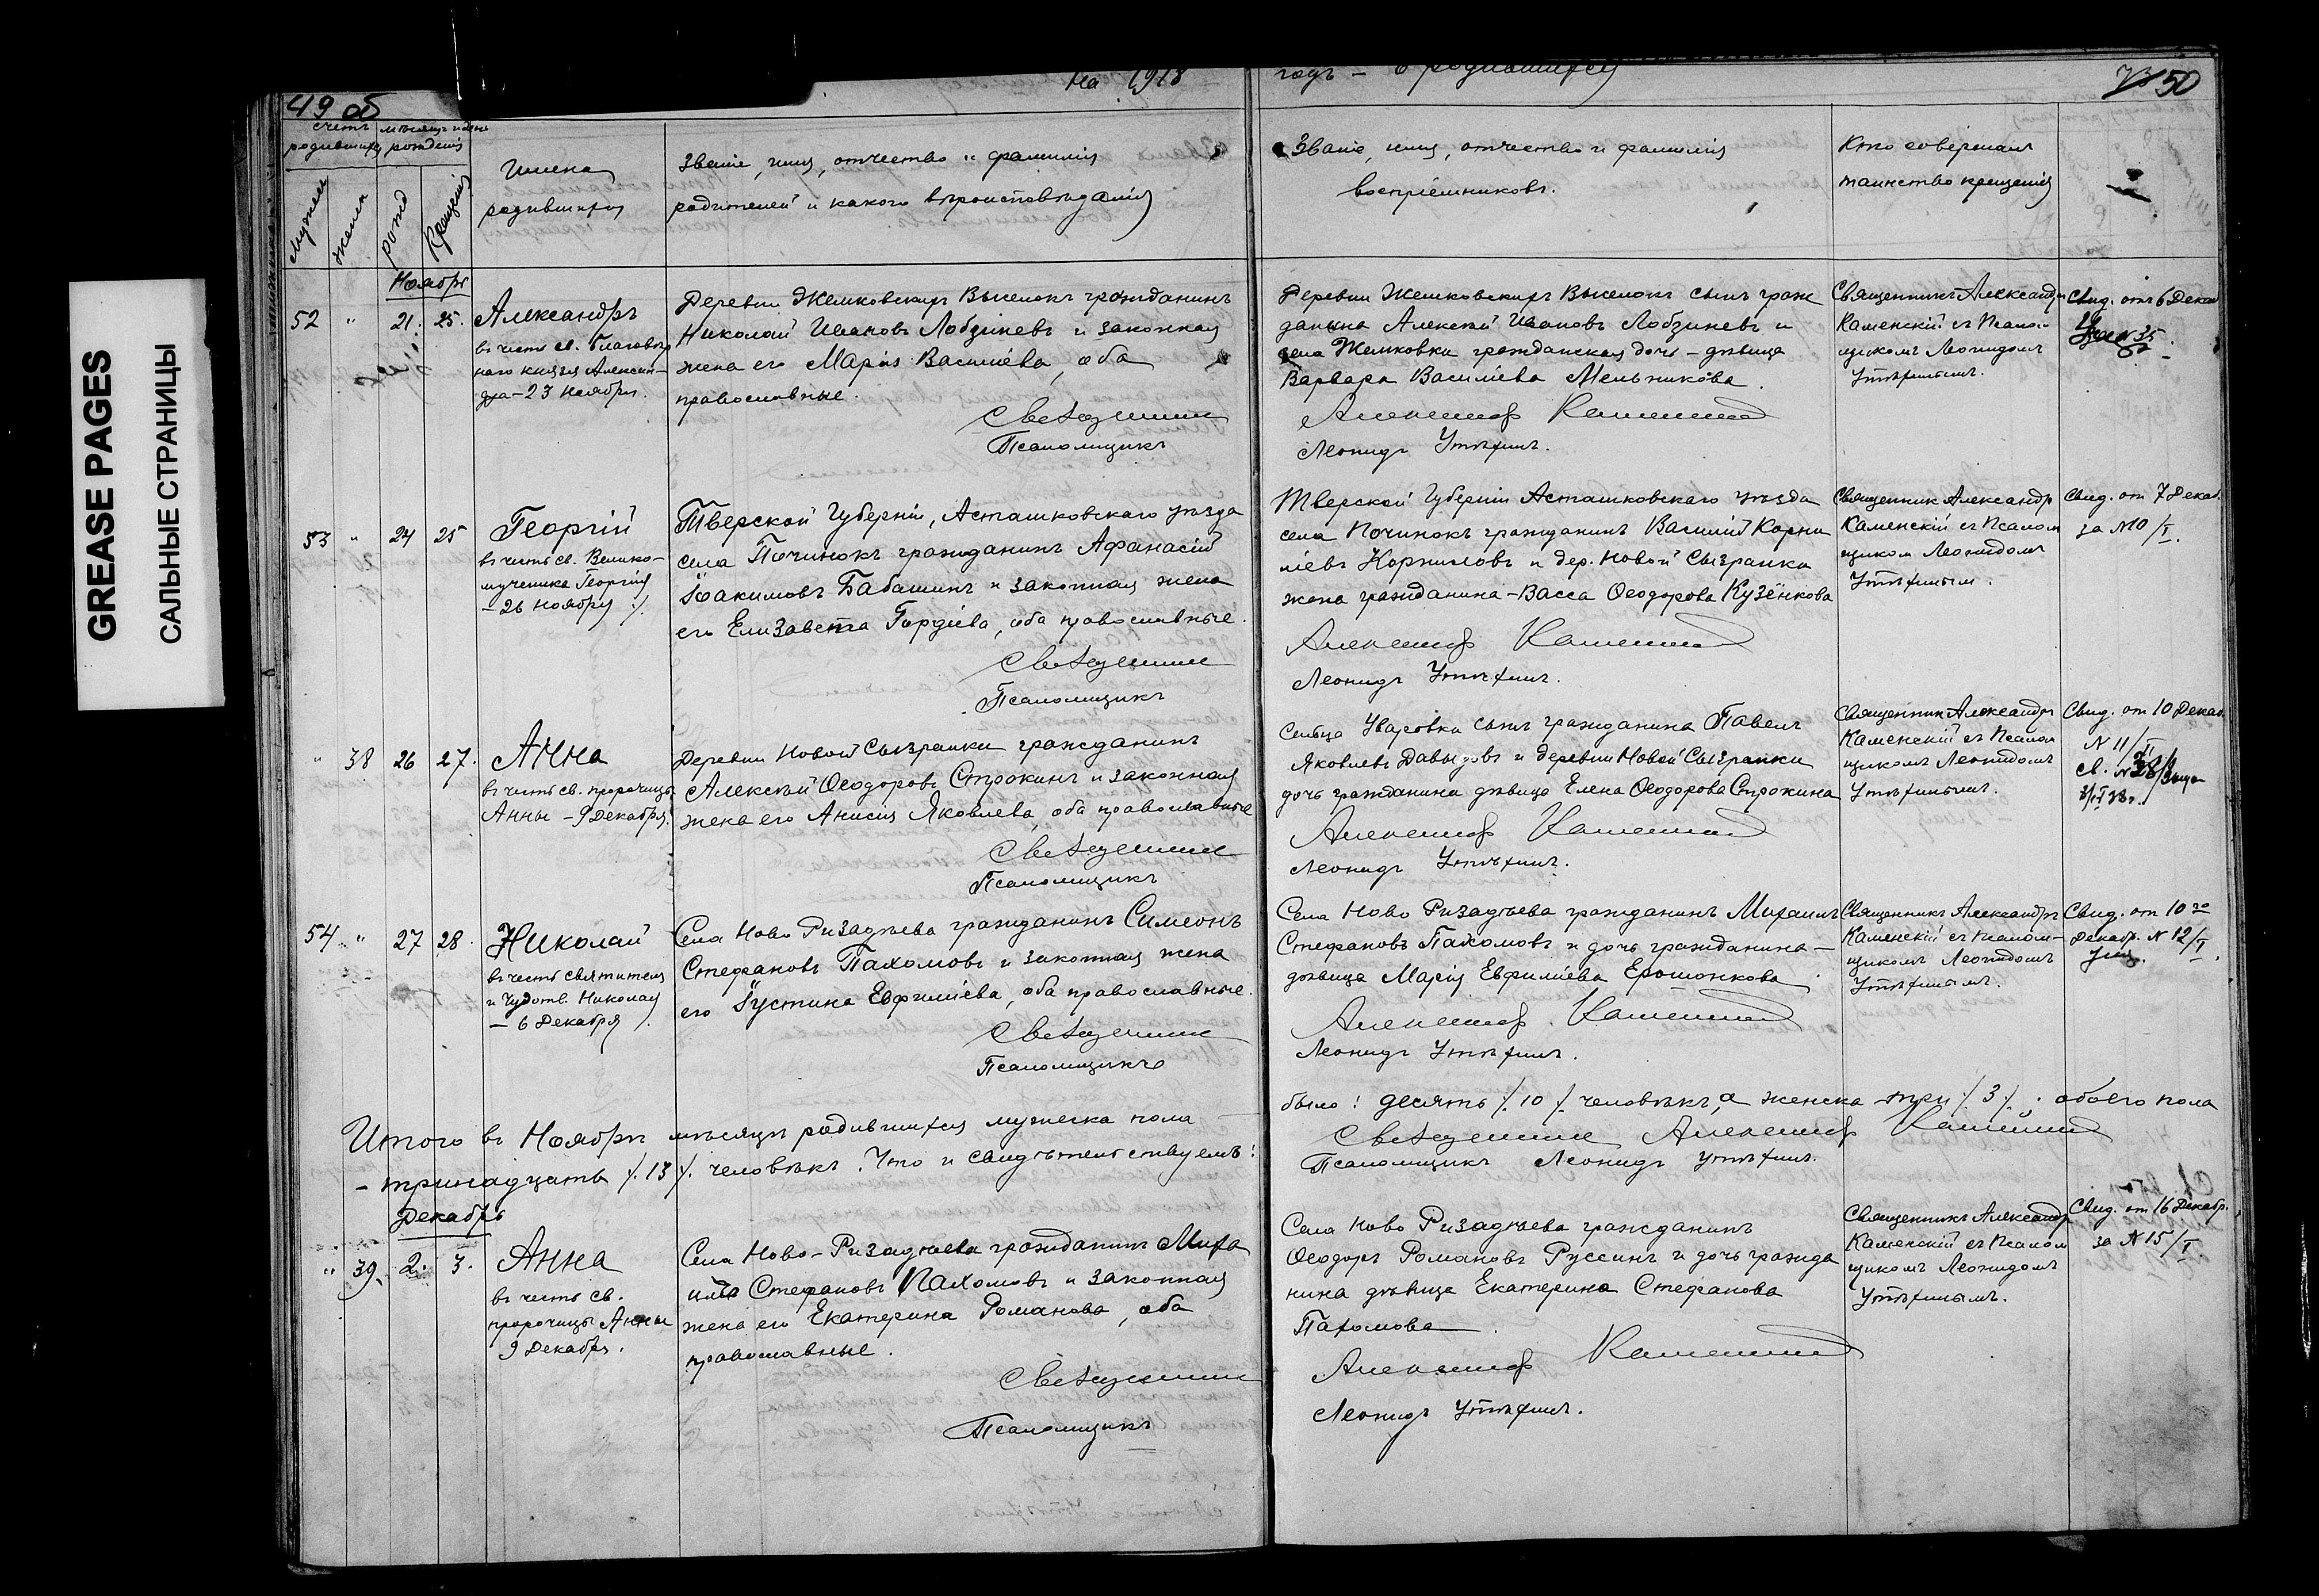 GREASE PAGES
САЛЬНЫЕ СТРАНИЦЫ
49 об
На 1918
годъ – о родившихся
50
счетъ родившихся
мѣсяцъ и день рожденія
мужеска
женска
рожд
крещенія
Имена
родившихся
Званіе, имя, отчество и фамилія
родителей и какого вѣроисповѣданія
Званіе, имя, отчество и фамилія
воспріемниковъ.
Кто совершалъ
таинство крещенія
Ноябрь
52 " 21. 25.
Александръ
въ честь св. Благовѣр
наго князя Алексан-
дра – 23 Ноября.
Деревни Жемковскихъ Выселокъ гражданинъ
Николай Ивановъ Лобзиневъ и законная
жена его Марія Василіева, оба
православные.
Священникъ
Псаломщикъ
Деревни Жемковскихъ Выселокъ сынъ граж
данина Алексѣй Ивановъ Лобзиневъ и
села Жемковки гражданская дочь – дѣвица
Варвара Василіева Мельникова.
Александръ Каменскій
Леонидъ Утѣхинъ.
Священникъ Александръ
Каменскій съ Псалом
щикомъ Леонидомъ
Утѣхинымъ.
Свид. отъ 6 Декаб
53 " 24 25
Георгій
въ честь св. Велико-
мученика Георгія
– 26 ноября ./.
Тверской Губерніи, Асташковскаго уѣзда
села Починокъ гражданинъ Афанасій
Іоакимовъ Бабашинъ и законная жена
его Елизавета Гордіева, оба православные.
Священникъ
Псаломщикъ
Тверской Губерніи Асташковскаго уѣзда
села Починокъ гражданинъ Василій Корни
ліевъ Корниловъ и дер. Новой Сызранки
жена гражданина – Васса Ѳеодорова Кузёнкова
Александръ Каменскій
Леонидъ Утѣхинъ.
Священник Александръ
Каменскій съ Псалом
щиком Леонидомъ
Утѣхиным.
Свид. от 7 Декаб.
за №10 /I.
" 38 26 27.
Анна
въ честь св. пророчицы
Анны – 9 Декабря.
Деревни Новой Сызранки гражданинъ
Алексѣй Ѳеодоровъ Строкинъ и законная
жена его Анисія Яковлева, оба православные
Священникъ
Псаломщикъ
Сельца Уваровки сынъ гражданина Павелъ
Яковлевъ Давыдовъ и деревни Новой Сызранки
дочь гражданина дѣвица Елена Ѳеодорова Строкина
Александръ Каменскій
Леонидъ Утѣхинъ.
Священник Александръ
Каменскій съ Псалом
щикомъ Леонидомъ
Утѣхинымъ.
Свид. от 10 Декаб.
N 11/I
54 " 27 28.
Николай
въ честь святителя
и Чудотв. Николая
– 6 Декабря ./.
Села Ново Ризадѣева гражданинъ Симеонъ
Стефановъ Пахомовъ и законная жена
его Іустина Евфиміева, оба православные.
Священникъ
Псаломщикъ
Села Ново Ризадѣева гражданинъ Михаилъ
Стефановъ Пахомовъ и дочь гражданина –
дѣвица Марія Евфиміева Ерошонкова.
Александръ Каменскій
Леонидъ Утѣхинъ.
Священникъ Александръ
Каменскій съ Псалом-
щикомъ Леонидомъ
Утѣхинымъ.
Свид. от 10 го
Декабр. N 12/I.
Итого въ Ноябрѣ мѣсяцѣ родившихся мужеска пола
было: десять /.10 /. человѣкъ, а женска три /.3 /. обоего пола
– тринадцать /.13 /. человѣкъ. Что и свидѣтельствуемъ:
Священникъ Александръ Каменскій
Псаломщикъ Леонидъ Утѣхинъ.
Декабрь
" 39. 2. 3.
Анна
въ честь св.
пророчицы Анны
9 Декабря.
Села Ново-Ризадѣева гражданинъ Миха
илъ Стефановъ Пахомовъ и законная
жена его Екатерина Романова, оба
православные.
Священникъ
Псаломщикъ
Села Ново Ризадѣева гражданинъ
Ѳеодоръ Романовъ Руссинъ и дочь гражда
нина дѣвица Екатерина Стефанова
Пахомова.
Александръ Каменскій
Леонидъ Утѣхинъ.
Священникъ Александр
Каменскій съ Псалом
щикомъ Леонидомъ
Утѣхинымъ.
Свид. от 16 Декабр.
за N 15/I.